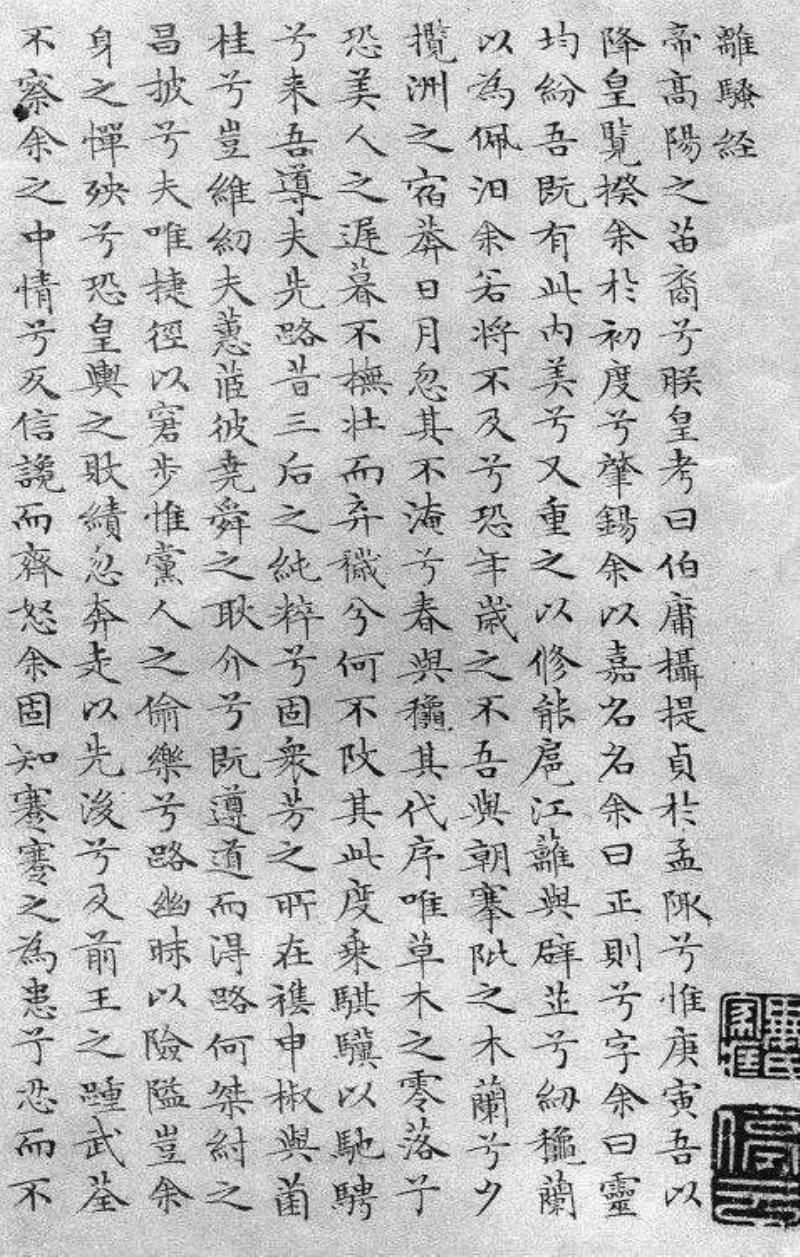 離騷經
帝高陽之苗裔兮朕皇考曰伯庸攝提貞於孟陬兮惟庚寅吾以
降皇覽揆余於初度兮肇錫余以嘉名名余曰正則兮字余曰靈
均紛吾既有此內美兮又重之以修能扈江蘺與辟芷兮紉穐蘭
以為佩汨余若將不及兮恐年歲之不吾與朝搴阰之木蘭兮夕
攬洲之宿莽日月忽其不淹兮春與穐其代序唯草木之零落兮
恐美人之遲暮不撫壯而弃穢兮何不改其此度乘騏驥以馳騁
兮来吾導夫先路昔三后之純粹兮固衆芳之所在襍申椒與菌
桂兮豈維紉夫蕙茝彼堯舜之耿介兮既遵道而得路何桀紂之
昌披兮夫唯捷徑以窘步惟黨人之偷樂兮路幽昧以險隘豈余
身之憚殃兮恐皇輿之敗績忽奔走以先後兮及前王之踵武荃
不察余之中情兮反信讒而齊怒余固知謇謇之為患兮忍而不